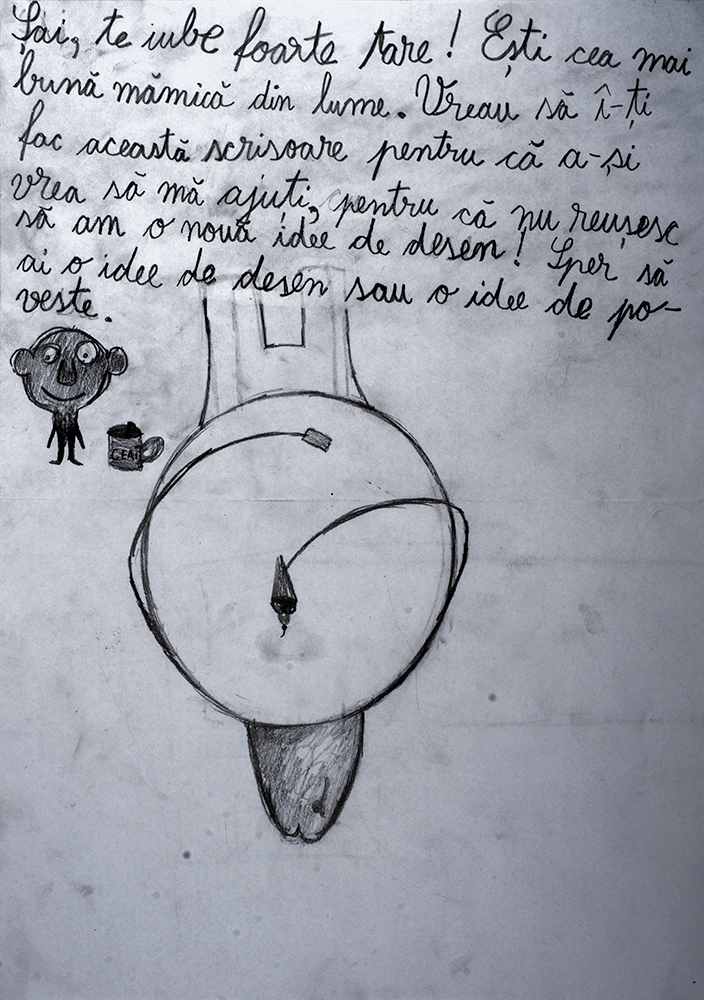 Țai, te iube foarte tare! Ești cea mai
bună mămică din lume. Vreau să î-ți
fac această scrisoare pentru că a-și
vrea să mă ajuți, pentru că nu reușesc
să am o nouă idee de desen! Sper să
ai o idee de desen sau o idee de po-
veste.
CEAI